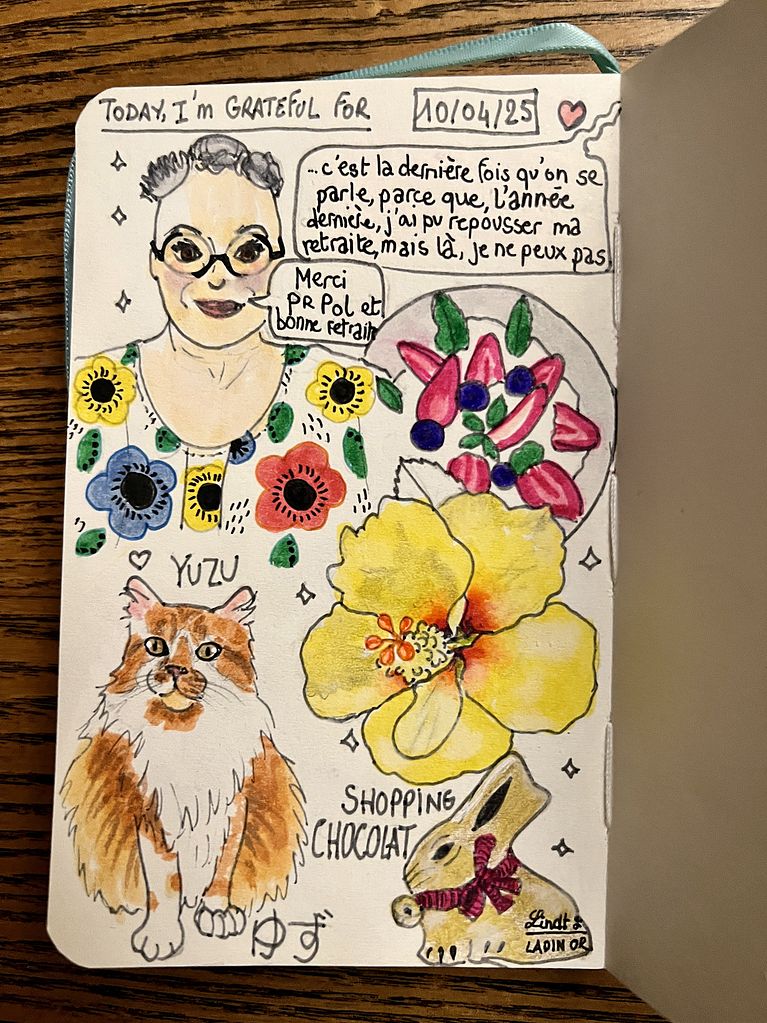 TODAY, I'm GRATEFUL FOR
10/04/25
...c'est la dernière fois qu'on se
parle, parce que, l'année
dernière, j'ai pu repousser ma
retraite, mais là, je ne peux pas.
Merci
PR Pol et
bonne retrait
YUZU
SHOPPING
CHOCOLAT
Lindt
LAPIN OR
ゆず